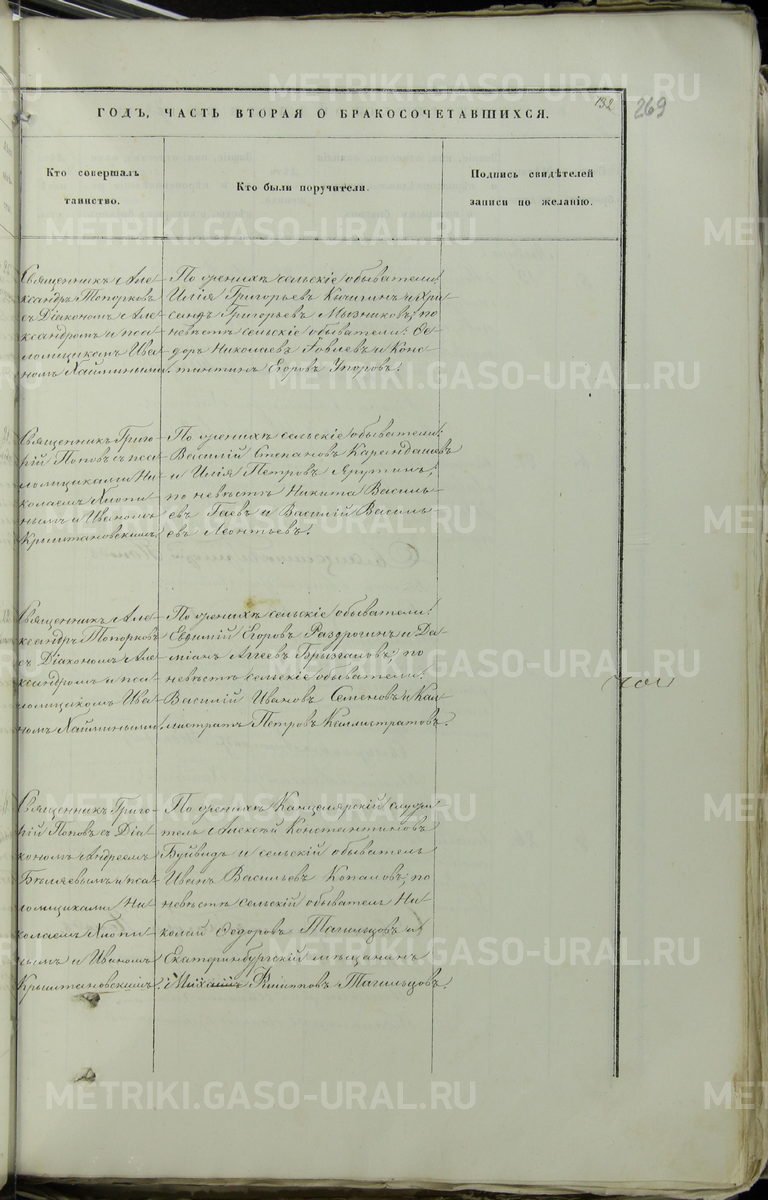 METRIKI.GASO-URAL.RU
132
269
ГОДЪ, ЧАСТЬ ВТОРАЯ О БРАКОСОЧЕТАВШИХСЯ.
Кто совершалъ
таинство.
Кто были поручители.
Подпись свидѣтелей
записи по желанію.
Священникъ Але-
ксандръ Топорковъ
съ Діакономъ Але-
ксандромъ и пса-
ломщикомъ Ива-
номъ Хаймиными.
По женихѣ сельскіе обыватели:
Илія Григорьевъ Кичигинъ и Хри-
санфъ Григорьевъ Мызниковъ; по
невѣстѣ сельскіе обыватели: Ѳе-
доръ Николаевъ Говлевъ и Конс-
тантинъ Егоровъ Упоровъ.
Священникъ Григо-
рій Поповъ съ пса-
ломщиками Ни-
колаемъ Хлопи-
нымъ и Иваномъ
Крыштановскимъ.
По женихѣ сельскіе обыватели:
Василій Степановъ Карандашевъ
и Илія Петровъ Ярутинъ;
по невѣстѣ Никита Василь-
евъ Гаевъ и Василій Василь-
евъ Леонтьевъ.
Священникъ Але-
ксандръ Топорковъ
съ Діакономъ Але-
ксандромъ и пса-
ломщикомъ Ива-
номъ Хаймиными.
По женихѣ сельскіе обыватели:
Евфимій Егоровъ Раздрогинъ и Да-
міанъ Агеевъ Брызгаловъ; по
невѣстѣ сельскіе обыватели:
Василій Ивановъ Семеновъ и Кал-
листратъ Петровъ Каллистратовъ.
Священникъ Григо-
рій Поповъ съ Діа-
кономъ Андреемъ
Бѣляевымъ и пса-
ломщиками Ни-
колаемъ Хлопи-
нымъ и Иваномъ
Крыштановскимъ.
По женихѣ Канцелярскій служи-
тель Алексѣй Константиновъ
Буйвидъ и сельскій обыватель
Иванъ Васильевъ Копаловъ; по
невѣстѣ сельскій обыватель Ни-
колай Ѳедоровъ Тагильцовъ и
Екатеринбургскій мѣщанинъ
Михаилъ Филипповъ Тагильцовъ.